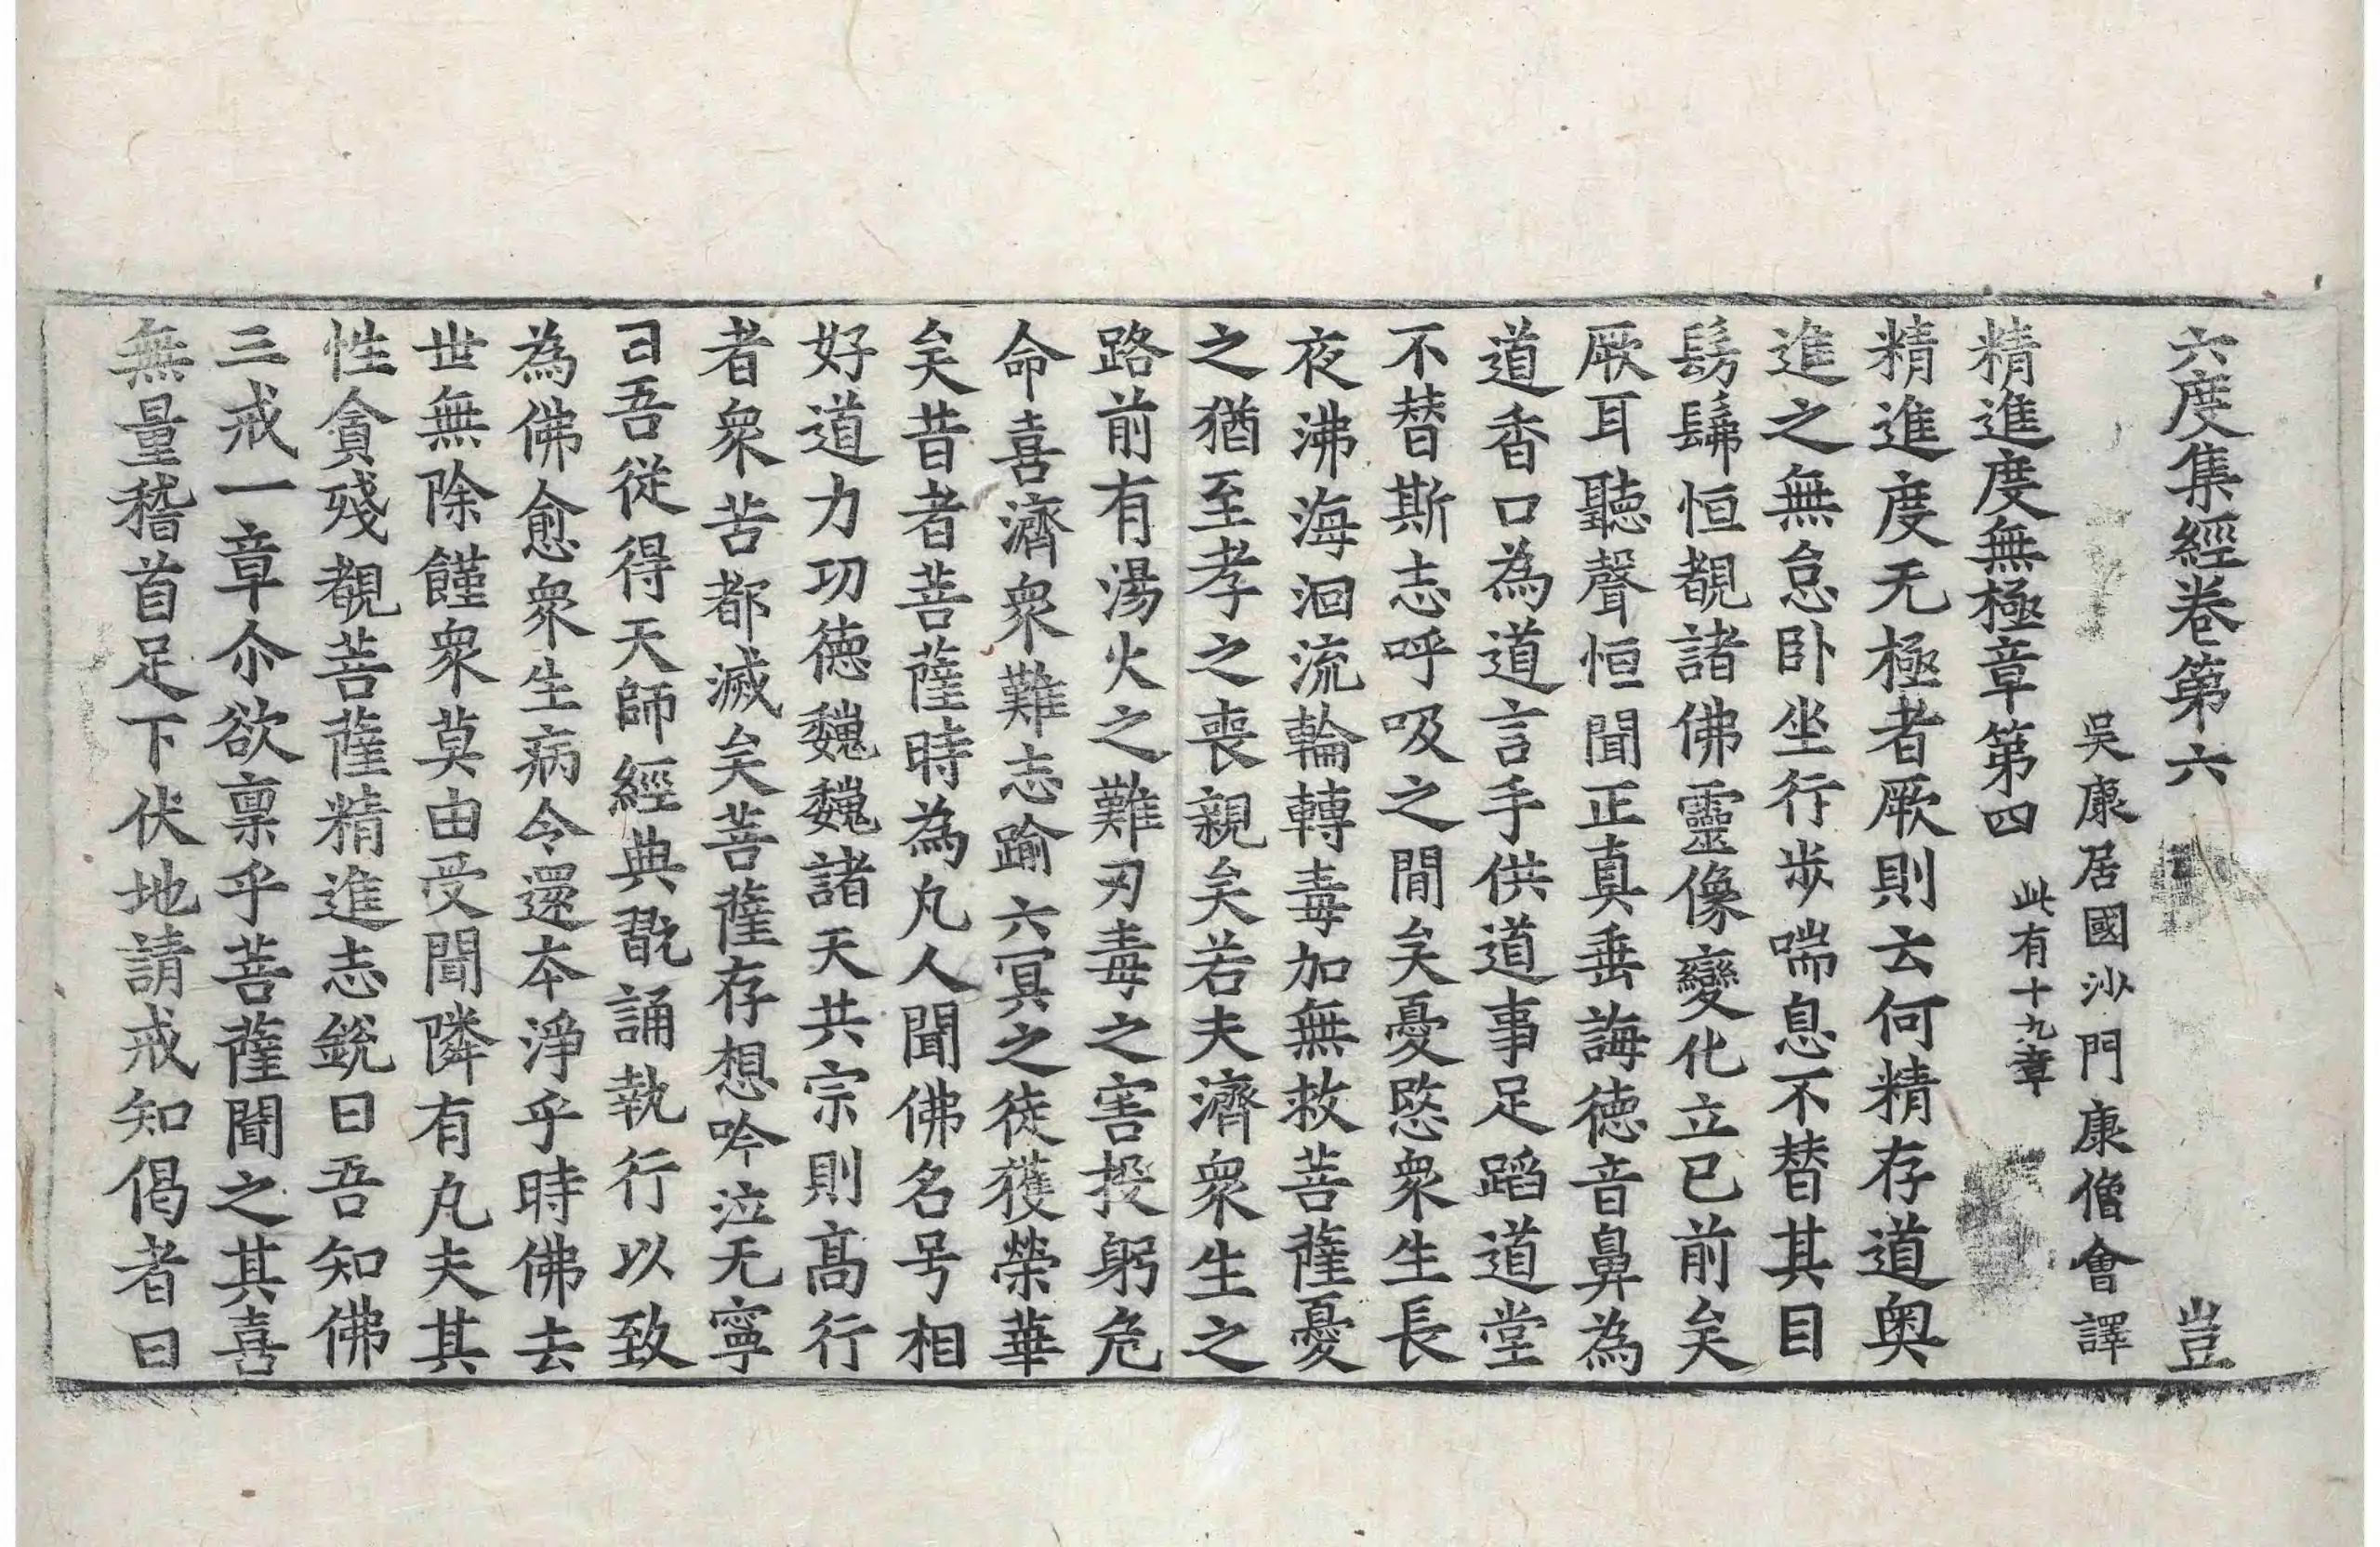 六度集經卷第六 豈
吳康居國沙門康僧會譯
精進度無極章第四 此有十九章
精進度无極者厥則云何精存道奧
進之無怠臥坐行步喘息不替其目
髣髴恒覩諸佛靈像變化立已前矣
厥耳聽聲恒聞正真垂誨德音鼻為
道香口為道言手供道事足蹈道堂
不替斯志呼吸之間矣憂愍衆生長
夜沸海洄流輪轉毒加無救菩薩憂
之猶至孝之喪親矣若夫濟衆生之
路前有湯火之難刃毒之害投躬危
命喜濟衆難志踰六冥之徒獲榮華
矣昔者菩薩時為凡人聞佛名号相
好道力功德巍巍諸天共宗則高行
者衆苦都滅矣菩薩存想吟泣无寧
曰吾從得天師經典翫誦執行以致
為佛愈衆生病令還本淨乎時佛去
世無除饉衆莫由受聞隣有凡夫其
性貪殘覩菩薩精進志銳曰吾知佛
三戒一章尒欲稟乎菩薩聞之其喜
無量稽首足下伏地請戒知偈者曰